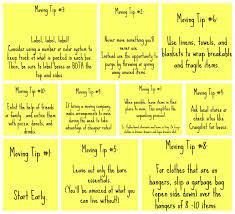 Moving Tip #3
Label, label, label!
Consider using a number or color system to
keep track of what is packed in each box.
Then, be sure to label boxes on BOTH the
top and sides.
Moving Tip #2
Never move something you'll
never use.
Instead use the opportunity to
purge by throwing or giving
away unused items.
Moving Tip #6
Use linens, towels, and
blankets to wrap breakable
and fragile items.
Moving Tip #10
Enlist the help of friends
or family, and entice them
with pizza, drinks, and
Moving Tip #7
If hiring a moving company,
make arrangements to move
during the week to take
advantage of cheaper rates!
When possible, leave items in their
Moving Tip #5
Ask local stores or
check sites like
Craigslist for boxes.
Moving Tip #1
Start Early.
Moving Tip #
Leave out only the bare
essentials.
(You'll be amazed at what
you can live without!)
Moving Tip #8
For clothes that are on
hangers, slip a garbage bag
(open side down) over the
hangers of 8-10 items